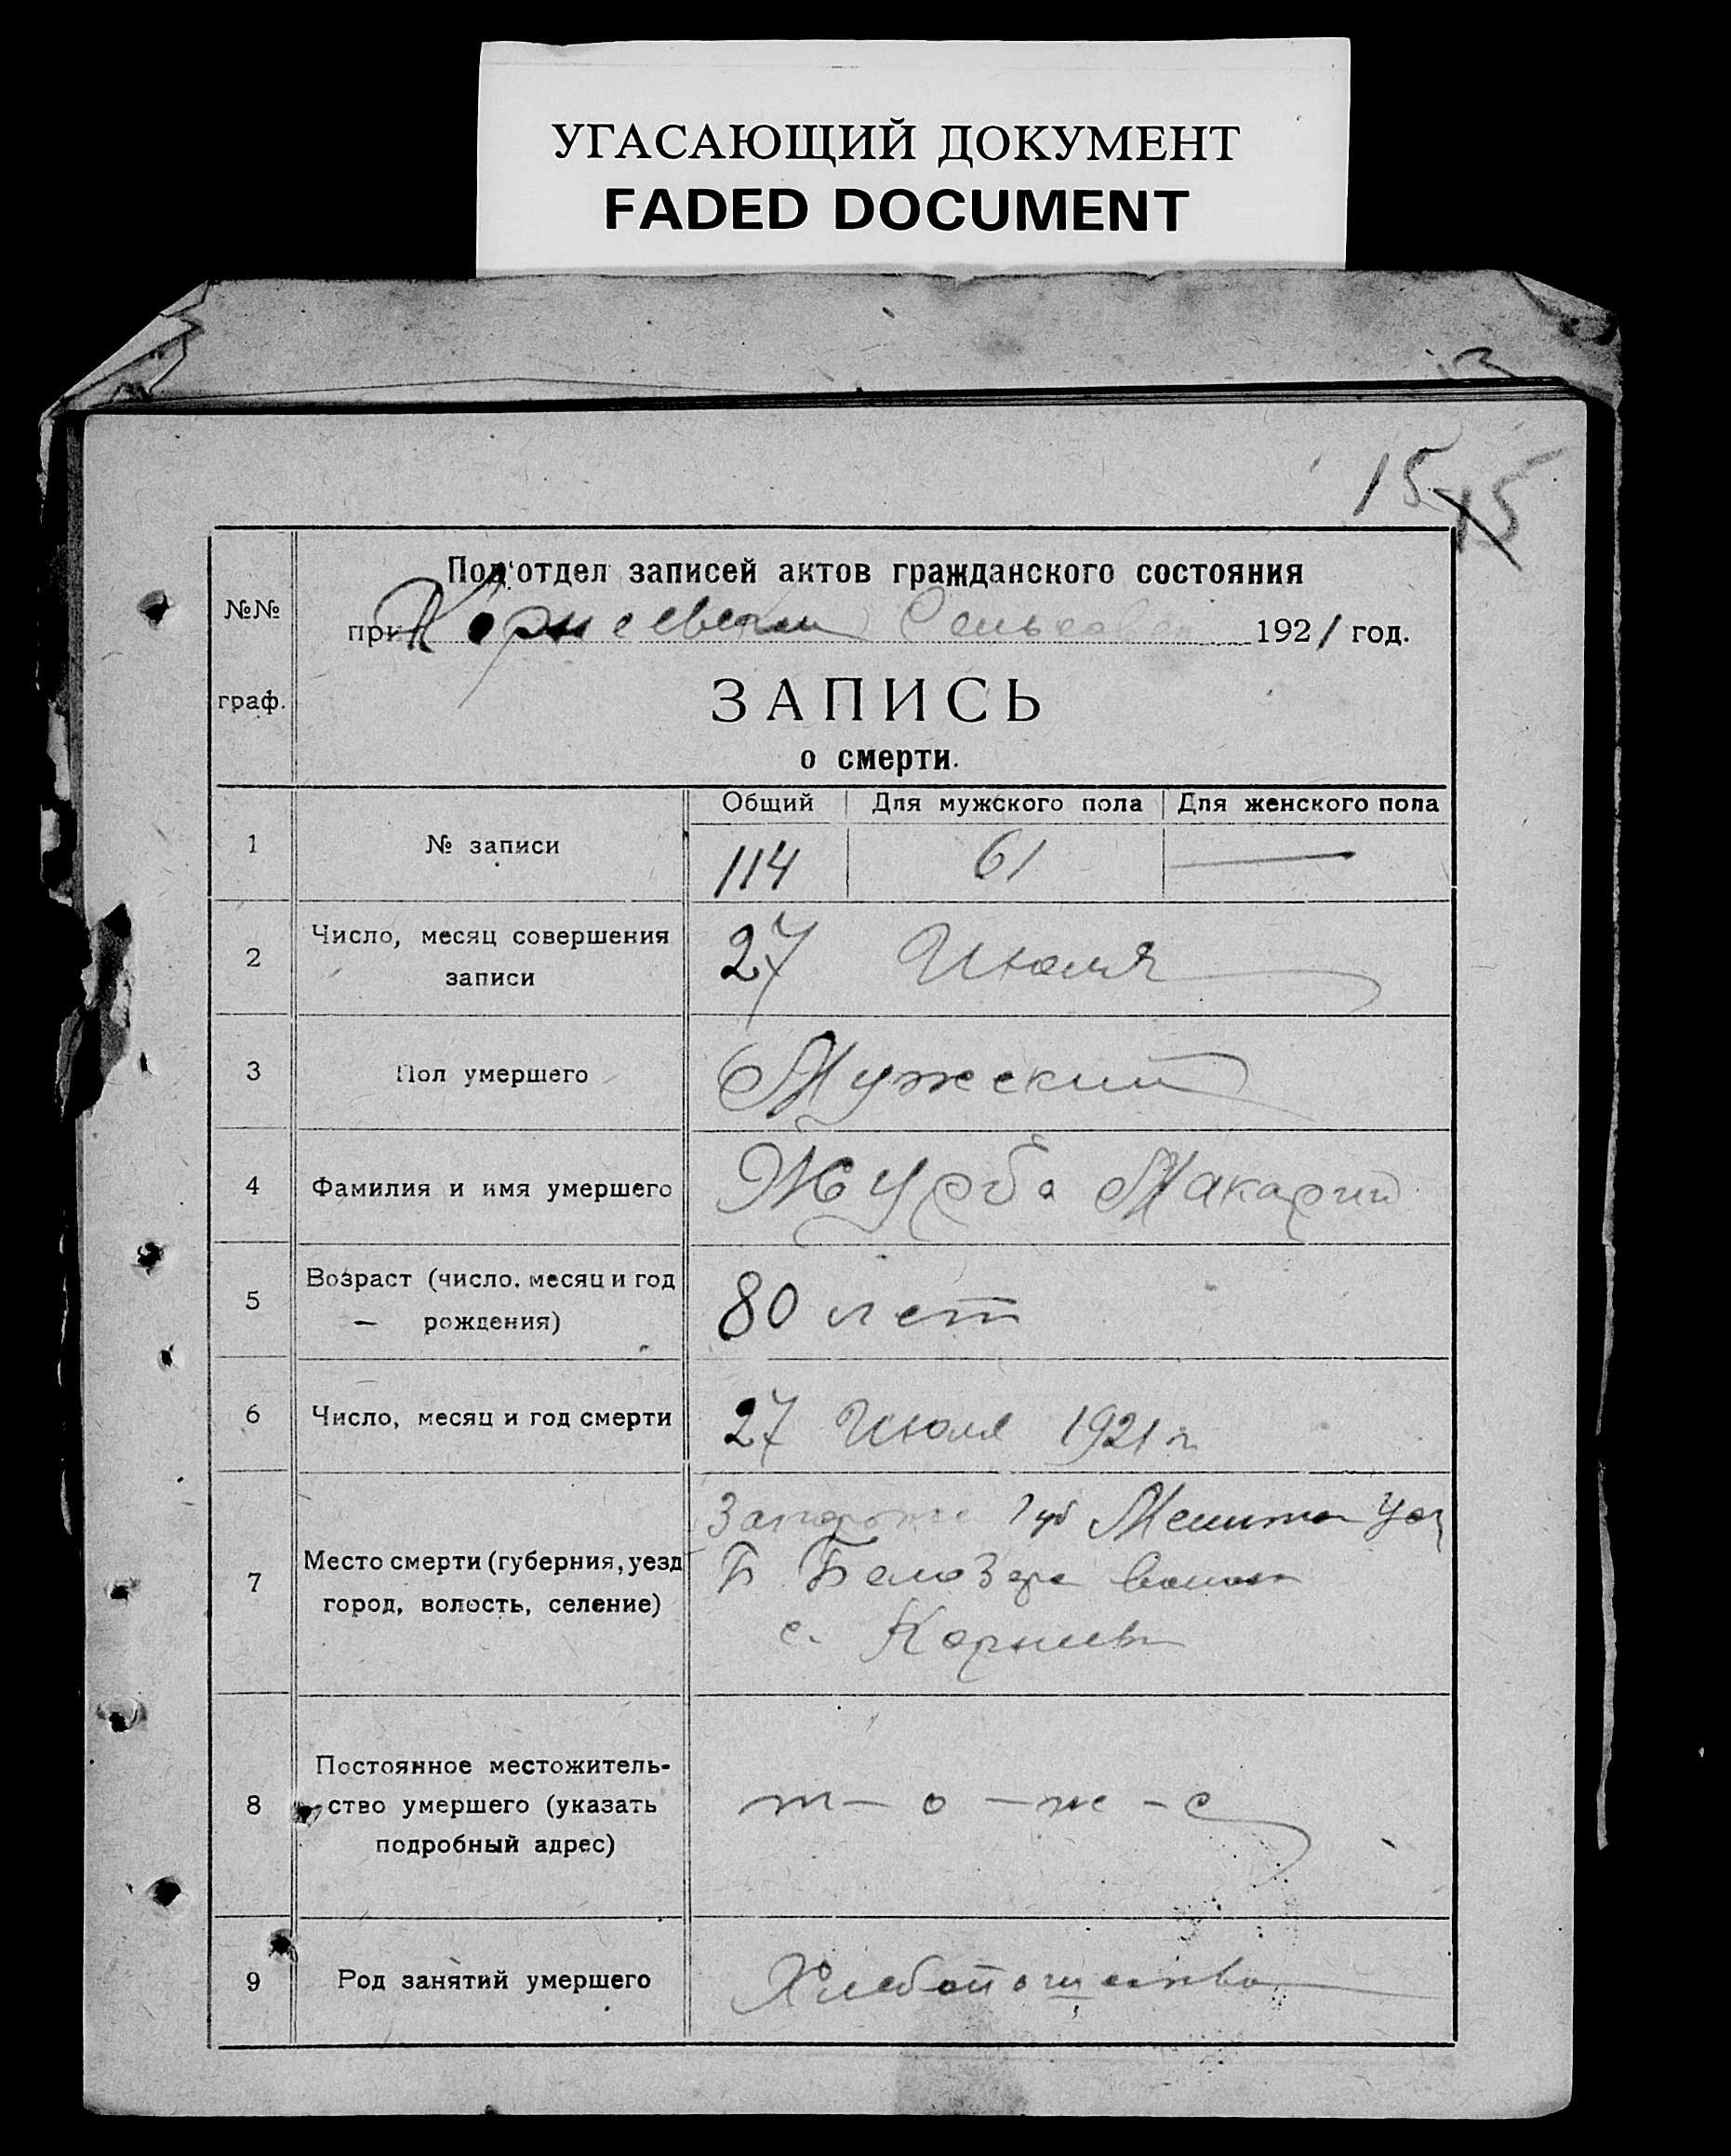 УГАСАЮЩИЙ ДОКУМЕНТ
FADED DOCUMENT
15 15
№№ граф.
Под'отдел записей актов гражданского состояния
при Корнеевском Сельсовет 1921 год.
ЗАПИСЬ
о смерти.
Общий Для мужского пола Для женского пола
1 № записи 114 61 —
2 Число, месяц совершения
записи
27 Июля
3 Пол умершего Мужеский
4 Фамилия и имя умершего Журба Макарий
5 Возраст (число, месяц и год
— рождения)
80 лет
6 Число, месяц и год смерти 27 Июля 1921 г
7 Место смерти (губерния, уезд
город, волость, селение)
Губ Уез
Б. Белозер
с.
8 Постоянное местожитель-
ство умершего (указать
подробный адрес)
т — о — же - е
9 Род занятий умершего